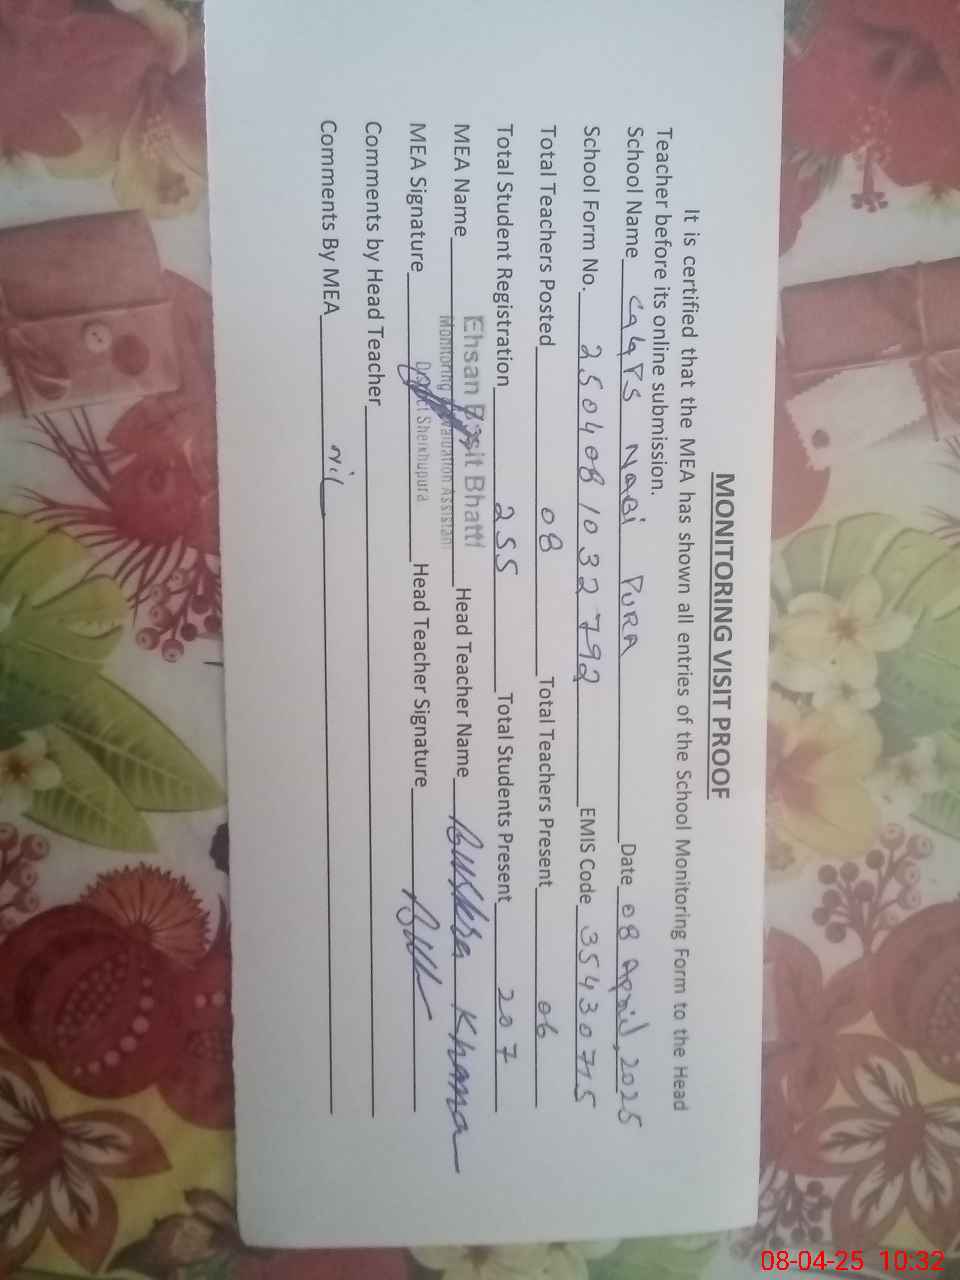 MONITORING VISIT PROOF
It is certified that the MEA has shown all entries of the School Monitoring Form to the Head
Teacher before its online submission.
School Name GGPS Nabi PURA Date 08 April, 2025
School Form No. 2504081032792 EMIS Code 35430715
Total Teachers Posted 08 Total Teachers Present 06
Total Student Registration 255 Total Students Present 207
MEA Name Ehsan Basit Bhatti Head Teacher Name Bushra Khana
Monitoring Evaluation Assistant
District Sheikhupura
MEA Signature Head Teacher Signature
Comments by Head Teacher
Comments By MEA nil
08-04-25 10:32